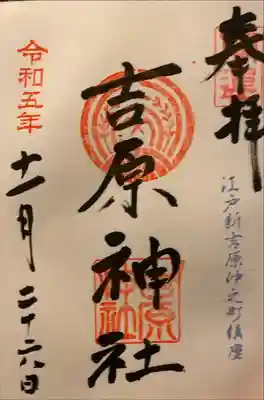 奉拝
江戸新吉原仲之町鎮座
吉原神社
令和五年
十一月二十六日